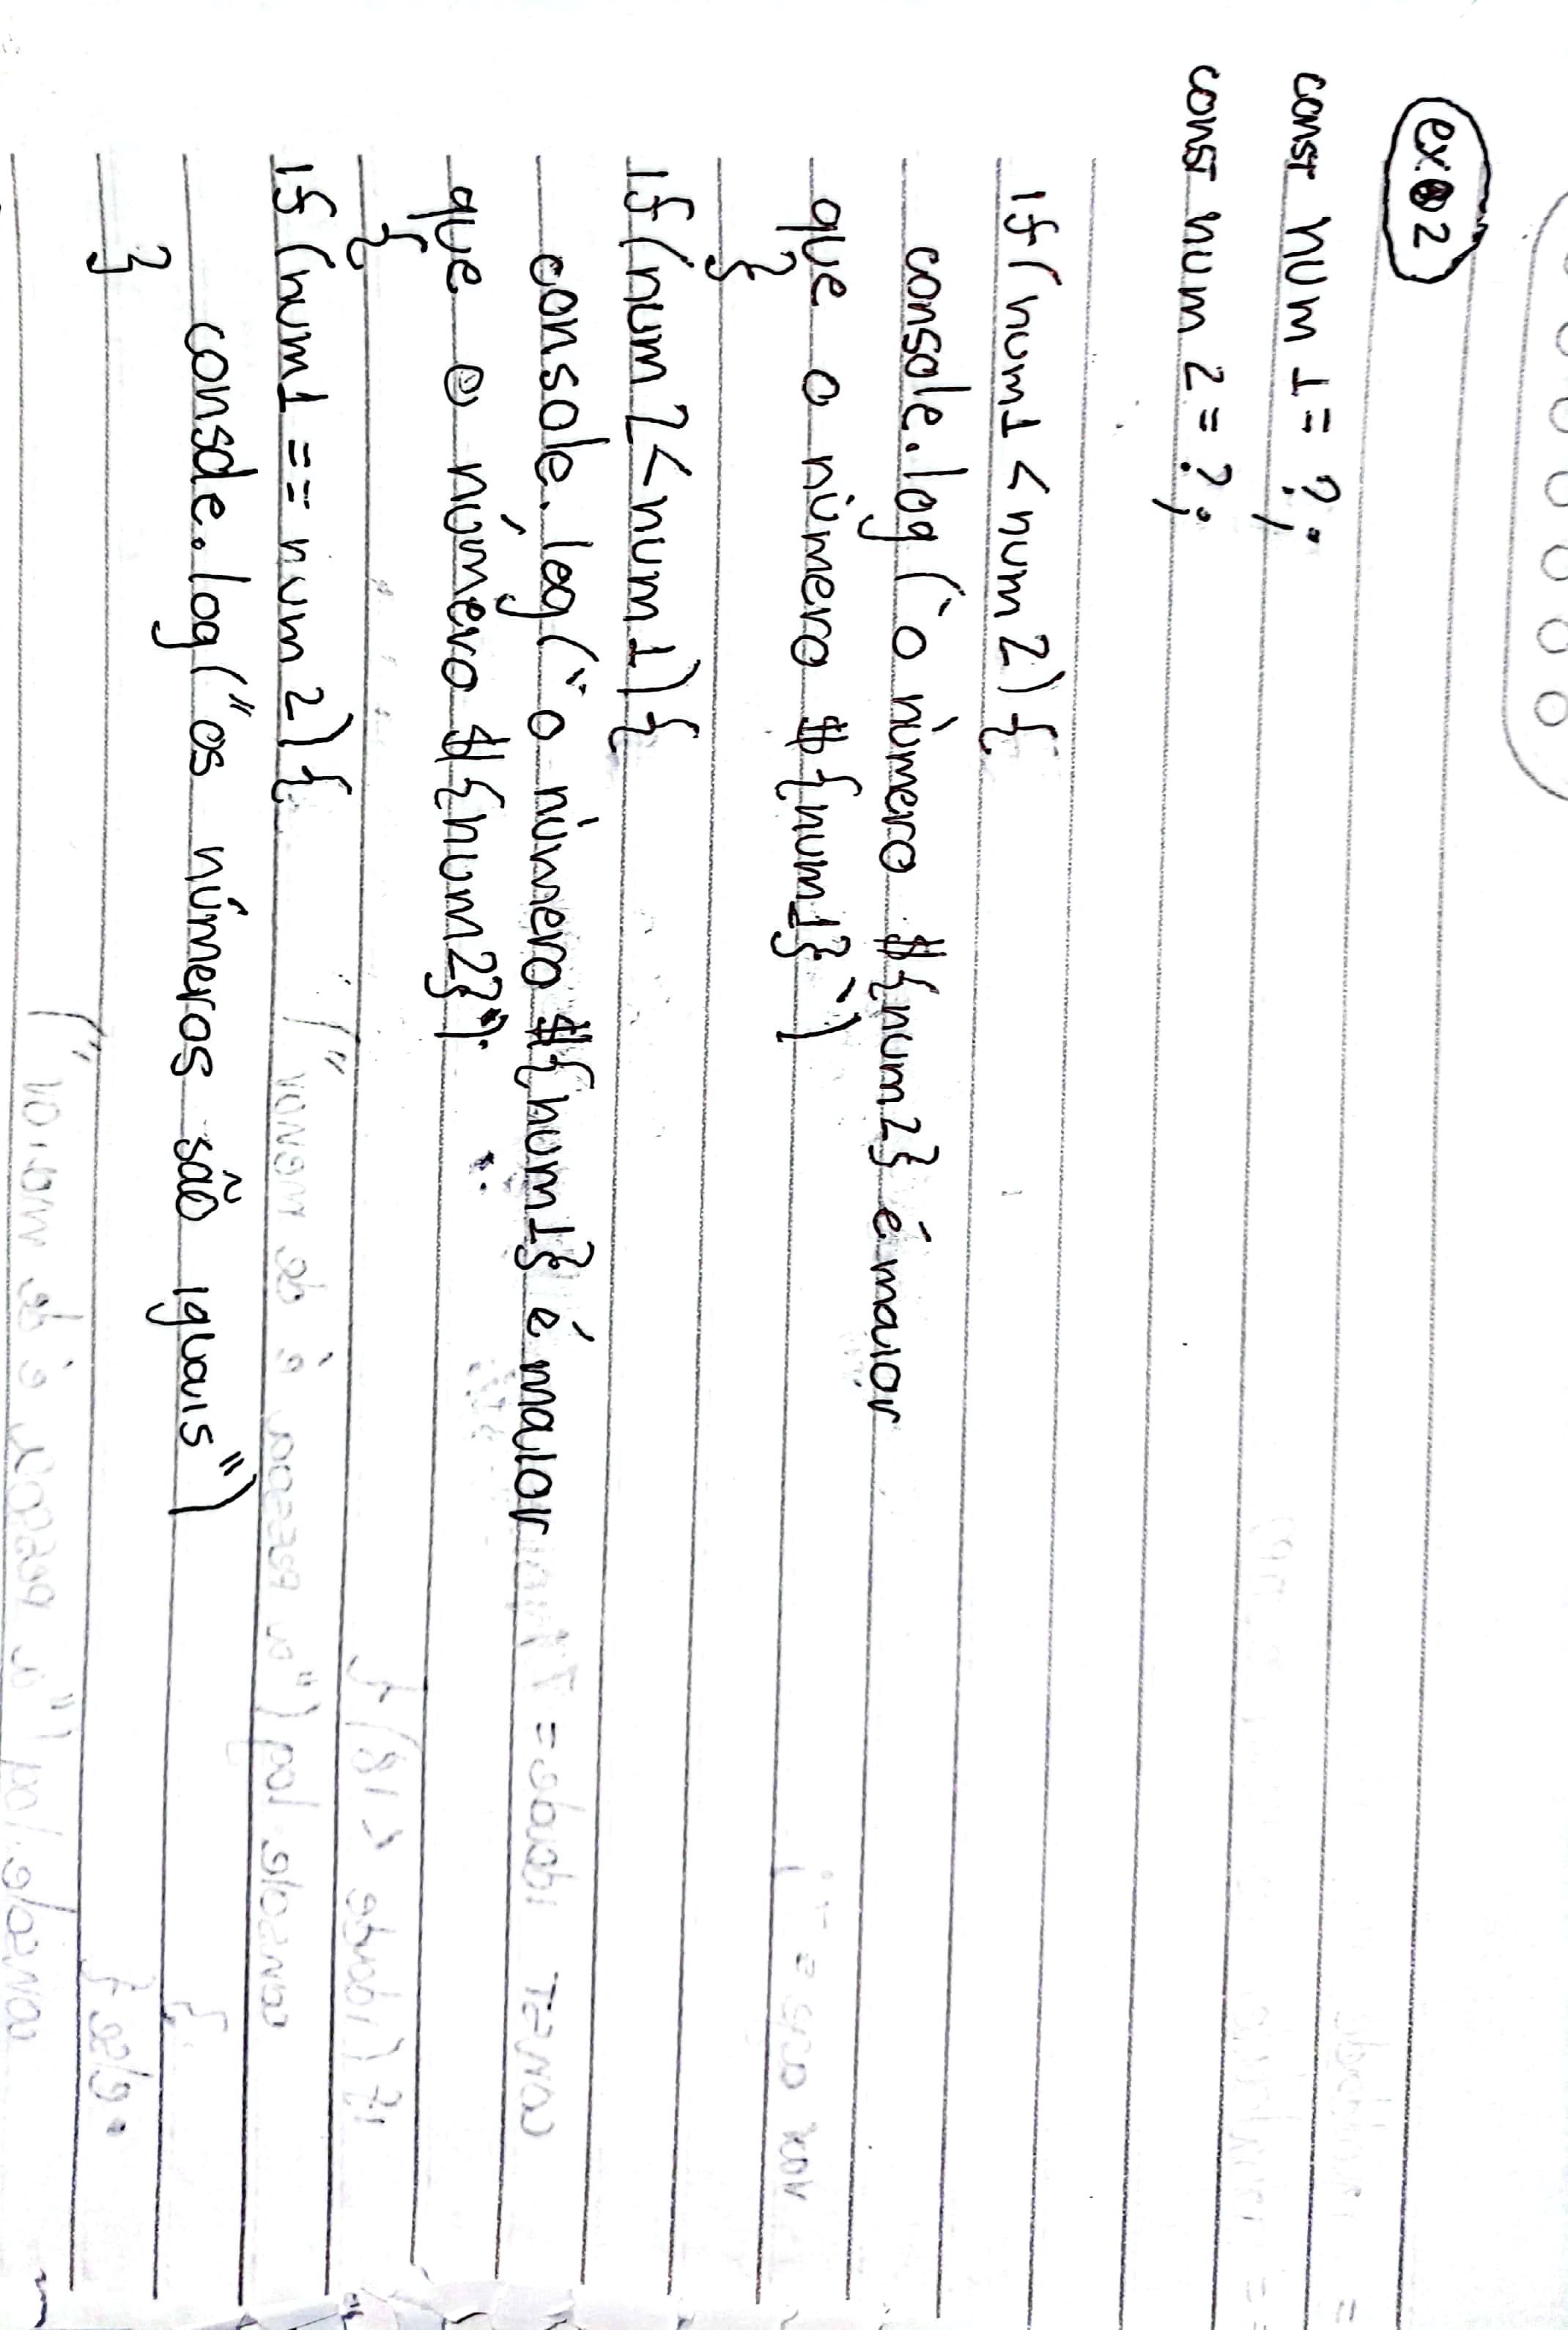 ex 2
const num 1 = ?;
const num 2 = ?;
if (num1 < num 2) {
console.log (`o número ${num2} é maior
que o número ${num1}`)
}
if (num2 < num1) {
console.log (" o número ${num1} é maior
que o número ${num2}").
}
if (num1 == num 2) {
console.log ("os números são iguais")
}